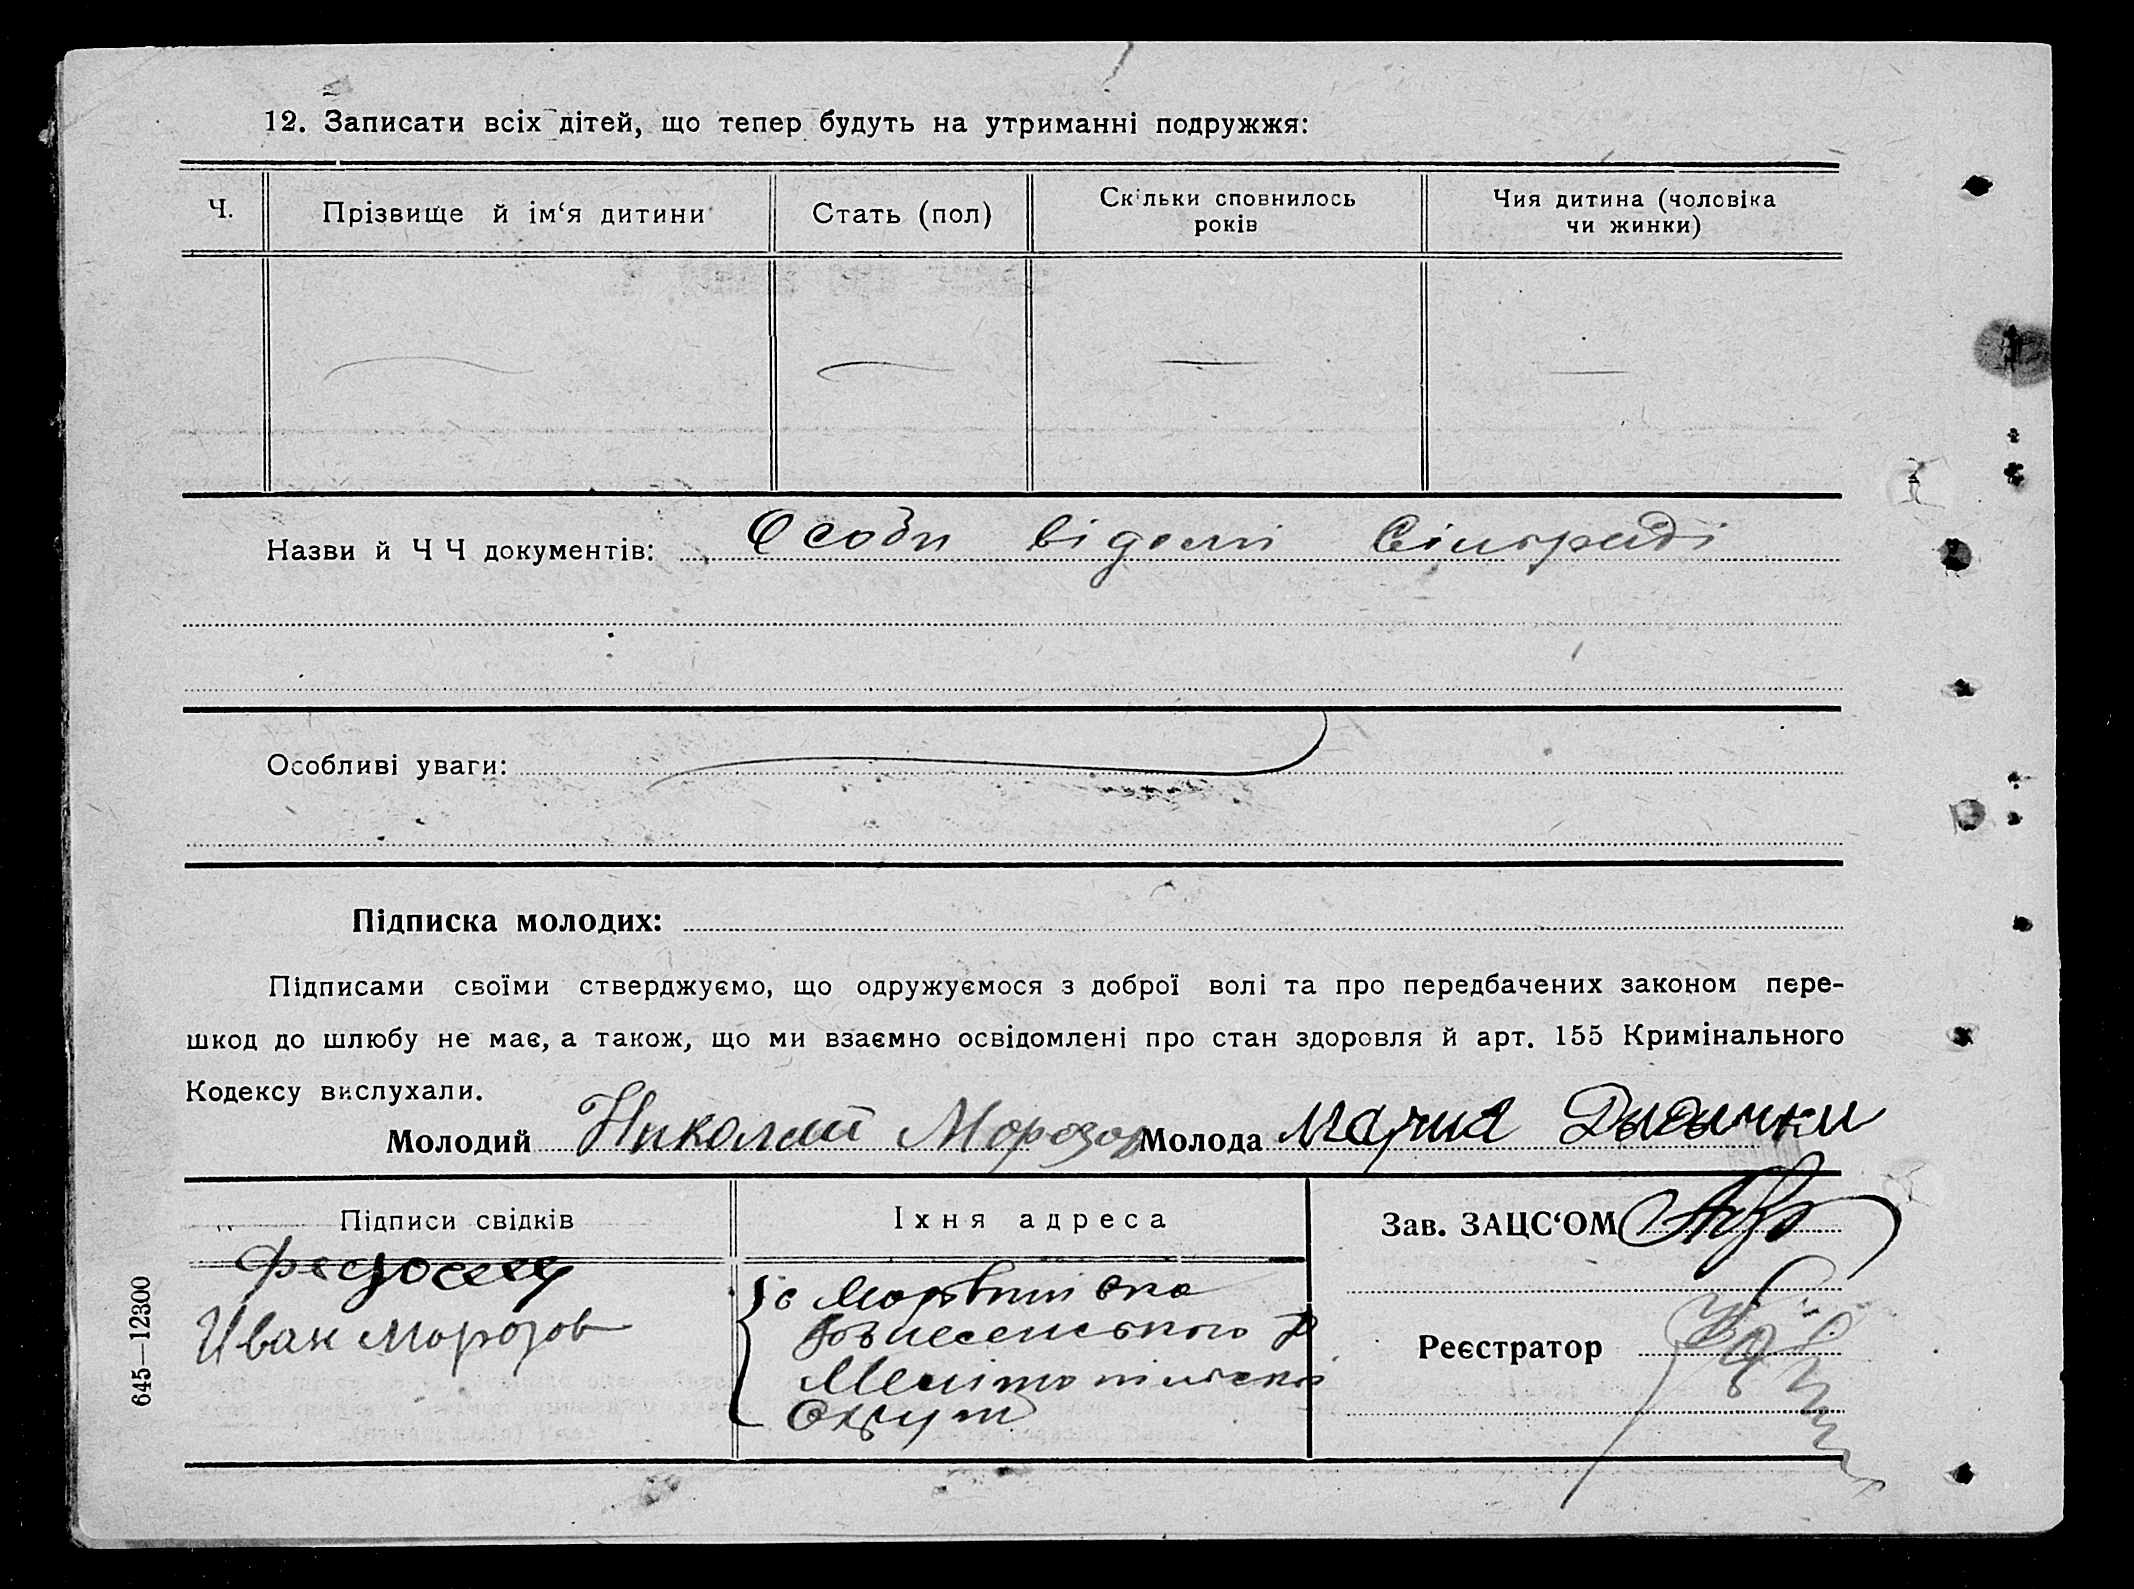 12. Записати всіх дітей, що тепер будуть на утриманні подружжя:
Ч. Прізвище й ім‘я дитини Стать (пол) Скільки сповнилось років Чия дитина (чоловіка чи жинки)
Назви й Ч Ч документів: Особи відомі Сільраді
Особливі уваги:
Підписка молодих:
Підписами своїми стверджуємо, що одружуємося з доброї волі та про передбачених законом пере-
шкод до шлюбу не має, а також, що ми взаємно освідомлені про стан здоровля й арт. 155 Кримінального
Кодексу вислухали.
Молодий Николай Морозов Молода Мария
Підписи свідків Їхня адреса Зав. ЗАЦС‘ОМ
Иван Морозов
с
Вознесенського р
Мелітопільської
Округи
Реєстратор
645—12300